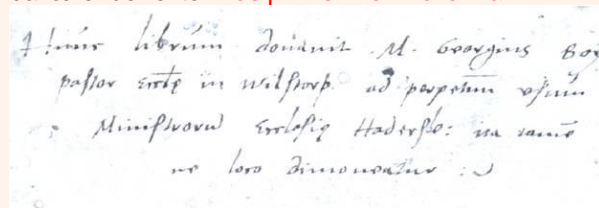 Hunc librum donauit M. Georgius Boy
pastor Eccłę in wilstorp. ad perpetuũ vsum
Ministrorũ Ecclesię Haderslo: ita tamẽ
ne loco dimoueatur :